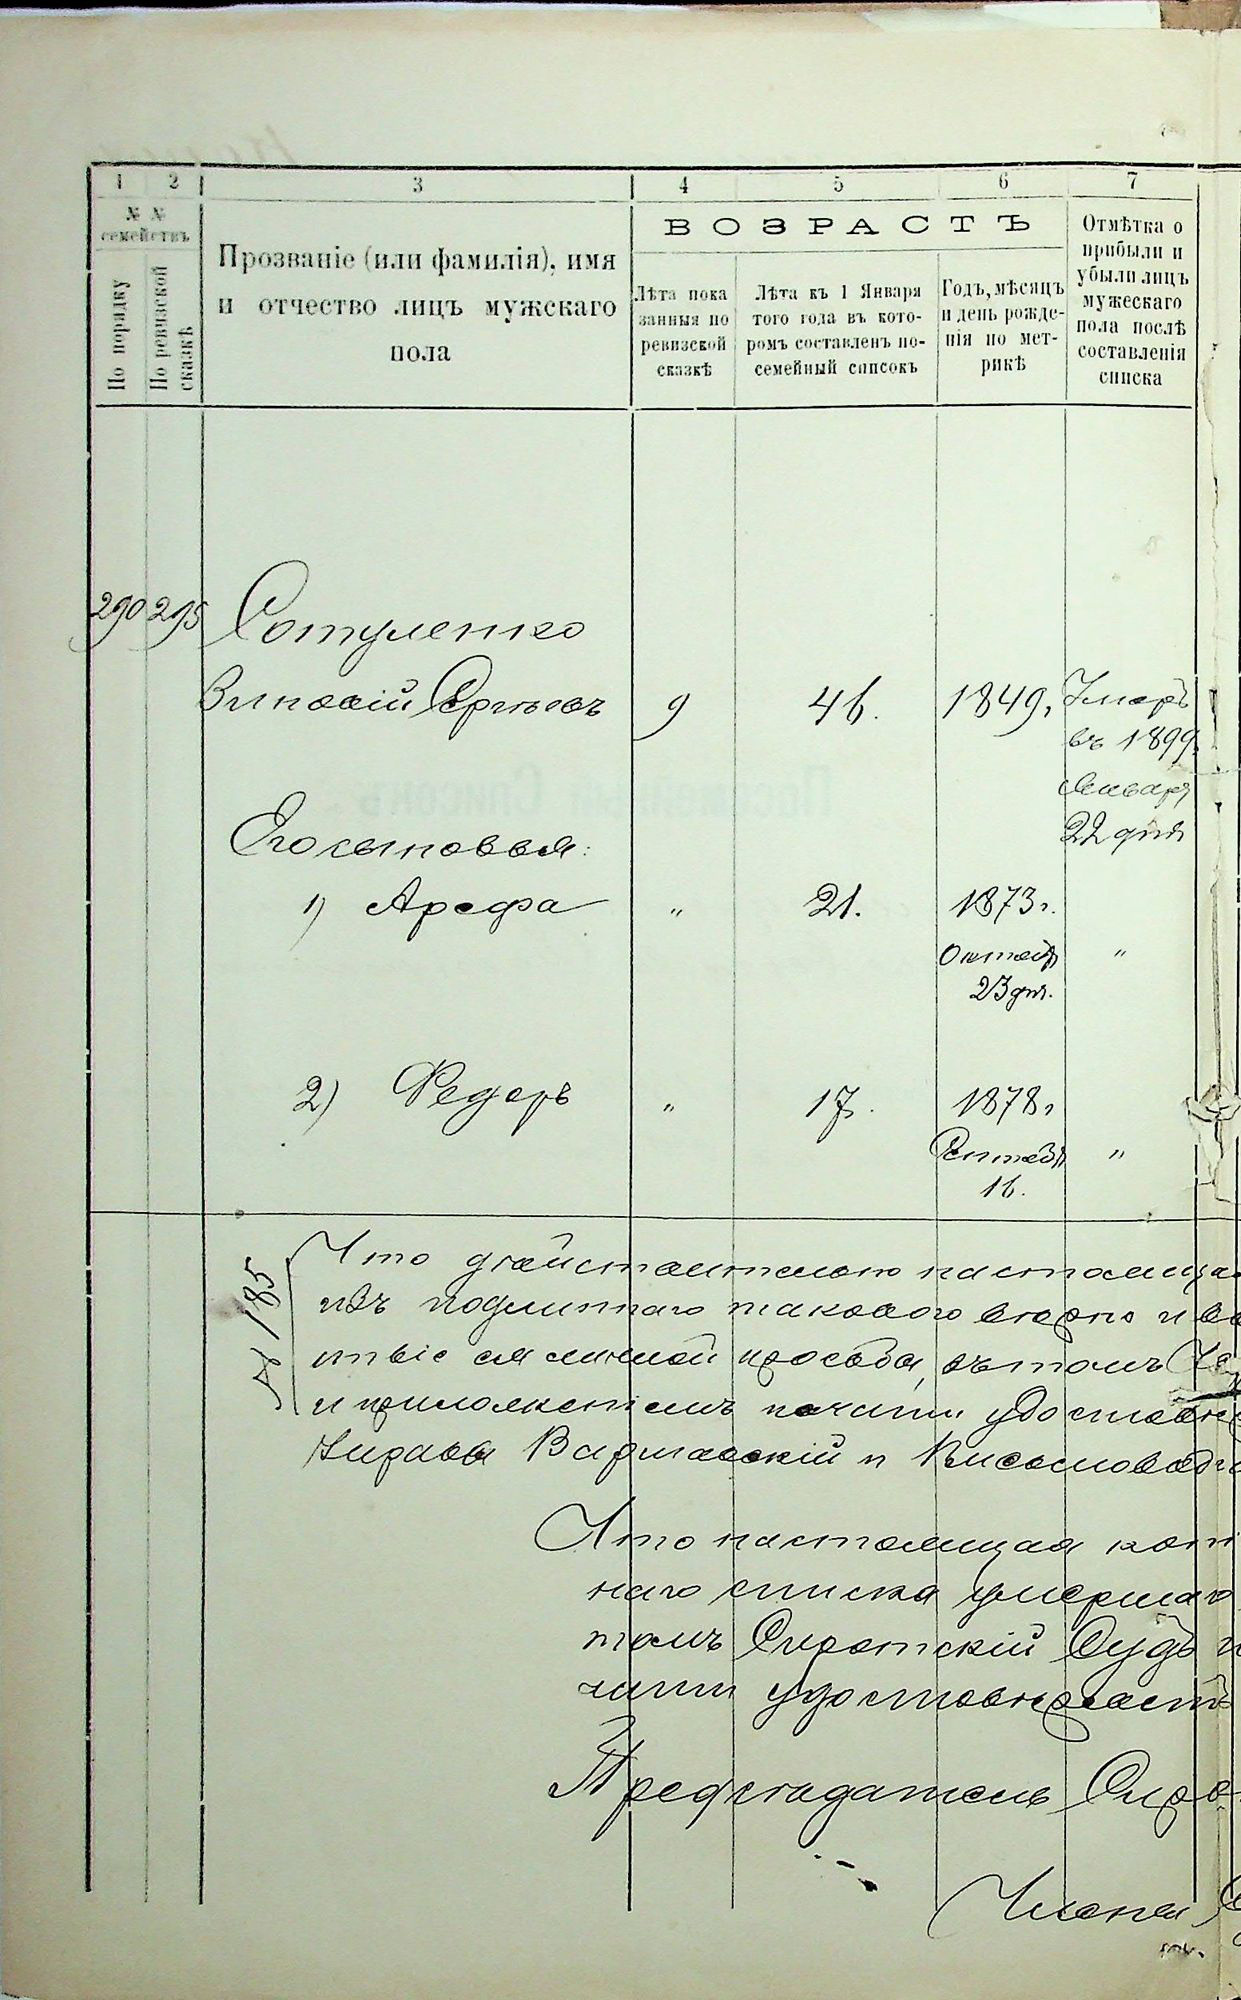 1 2 3 4 5 6 7
№ № семействъ
По порядку
По ревизской сказкѣ
Прозваніе (или фамилія), имя
и отчество лицъ мужскаго
пола
ВОЗРАСТЪ
Лѣта пока
занныя по
ревизской
сказкѣ
Лѣта къ 1 Января
того года въ кото-
ромъ составленъ по-
семейный списокъ
Годъ, мѣсяцъ
и день рожде-
нія по мет-
рикѣ
Отмѣтка о
прибыли и
убыли лицъ
мужескаго
пола послѣ
составленія
списка
290 295 Сотуленко
Сергѣевъ 9 46. 1849г Умеръ
въ 1899
Января
22 дня
Его сыновья:
1) Арефа " 21. 1873г.
Октяб "
23 дня.
2) Федоръ " 17. 1878г
Сентяб "
16.
№ 185
Что действительно настояща
изъ подлиннаго таковаго вѣрна и
личной просьбы, въ томъ
и приложеніемъ печати удостовѣ
Управа Варшавскій и
Что настоящая коп
наго списка умершаго
томъ Сиротскій Судъ
чати удостовѣряетъ
Предсѣдатель Сиро
Члены